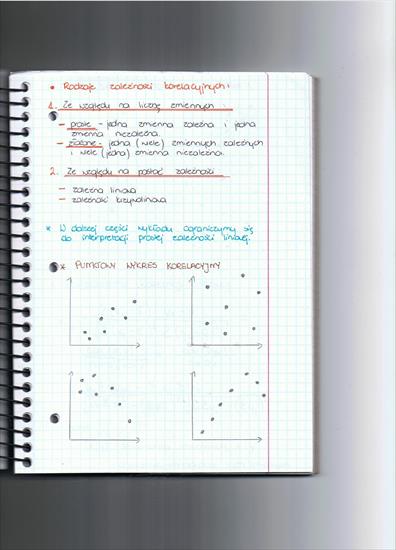 • Rodzaje zależności korelacyjnych:
1. Ze względu na liczbę zmiennych
– proste - jedna zmienna zależna i jedna
zmienna niezależna.
– złożone - jedna (wiele) zmiennych zależnych
i wiele (jedna) zmienna niezależna.
2. Ze względu na postać zależności
– zależna liniowa
– zależność krzywoliniowa
* W dalszej części wykładu ograniczymy się
do interpretacji prostej zależności liniowej.
* PUNKTOWY WYKRES KORELACYJNY